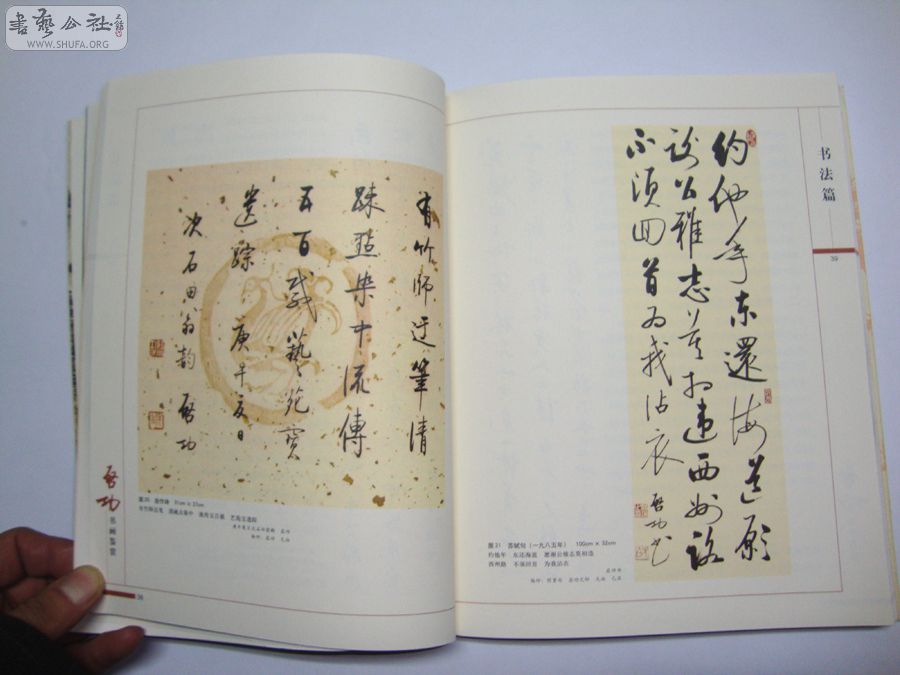 書藝公社
WWW.SHUFA.ORG
有竹師迂筆清
疎點染中流傳
五百載藝苑寶
遺踪 庚午夏日
次石田翁韵 啟功
启功
书画鉴赏
38
书法篇
39
約他年東還海道願
謝公雅志莫相違西州路
不須回首为我沾衣 啟功书
图31 苏轼句（一九八五年） 100cm × 32cm
约他年 东还海道 愿谢公雅志莫相违
西州路 不须回首 为我沾衣